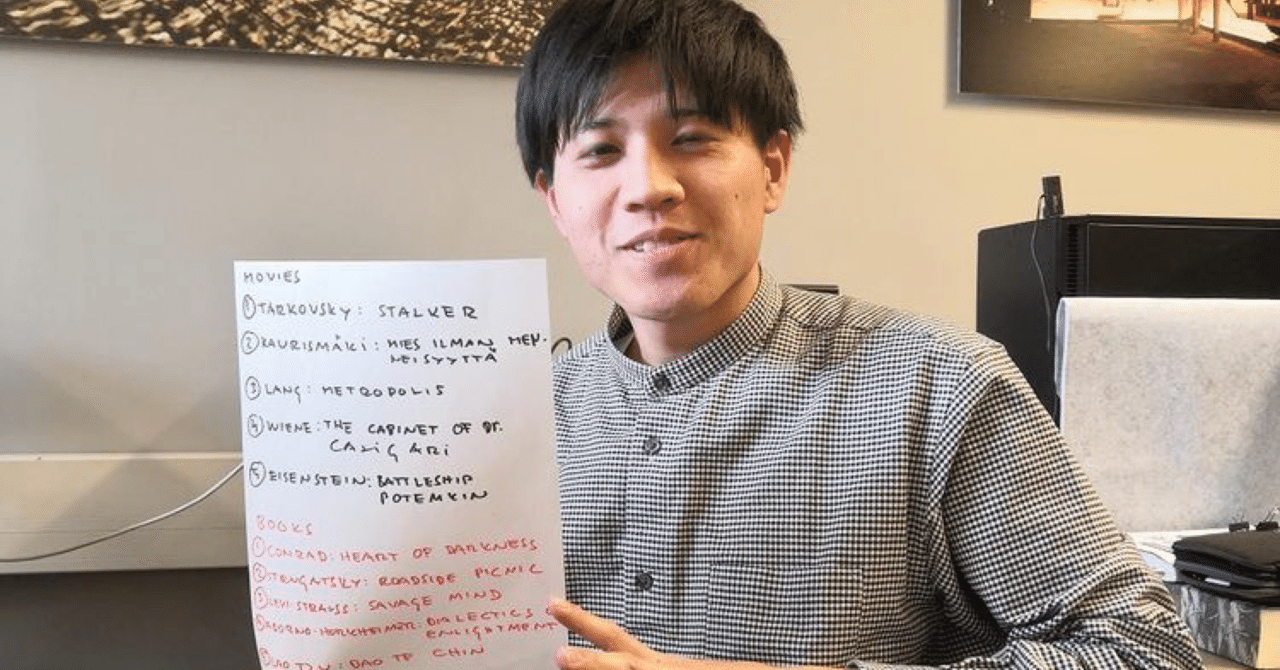 MOVIES
① TARKOVSKY: STALKER
② KAURISMÄKI: MIES ILMAN MEN-
NEISYYTTÄ
③ LANG: METROPOLIS
④ WIENE: THE CABINET OF DR.
CALIGARI
⑤ EISENSTEIN: BATTLESHIP
POTEMKIN
BOOKS
① CONRAD: HEART OF DARKNESS
② STRUGATSKY: ROADSIDE PICNIC
③ LEVI-STRAUSS: SAVAGE MIND
④ ADORNO-HORKHEIMER: DIALECTICS
ENLIGHTMENT
⑤ LAO TZU: DAO TE CHIN